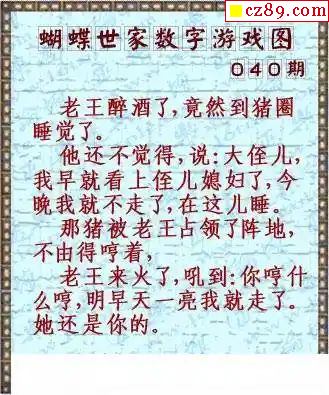 cz89.com
蝴蝶世家数字游戏图
040期
老王醉酒了,竟然到猪圈
睡觉了。
他还不觉得,说:大侄儿,
我早就看上侄儿媳妇了,今
晚我就不走了,在这儿睡。
那猪被老王占领了阵地,
不由得哼着,
老王来火了,吼到:你哼什
么哼,明早天一亮我就走了。
她还是你的。